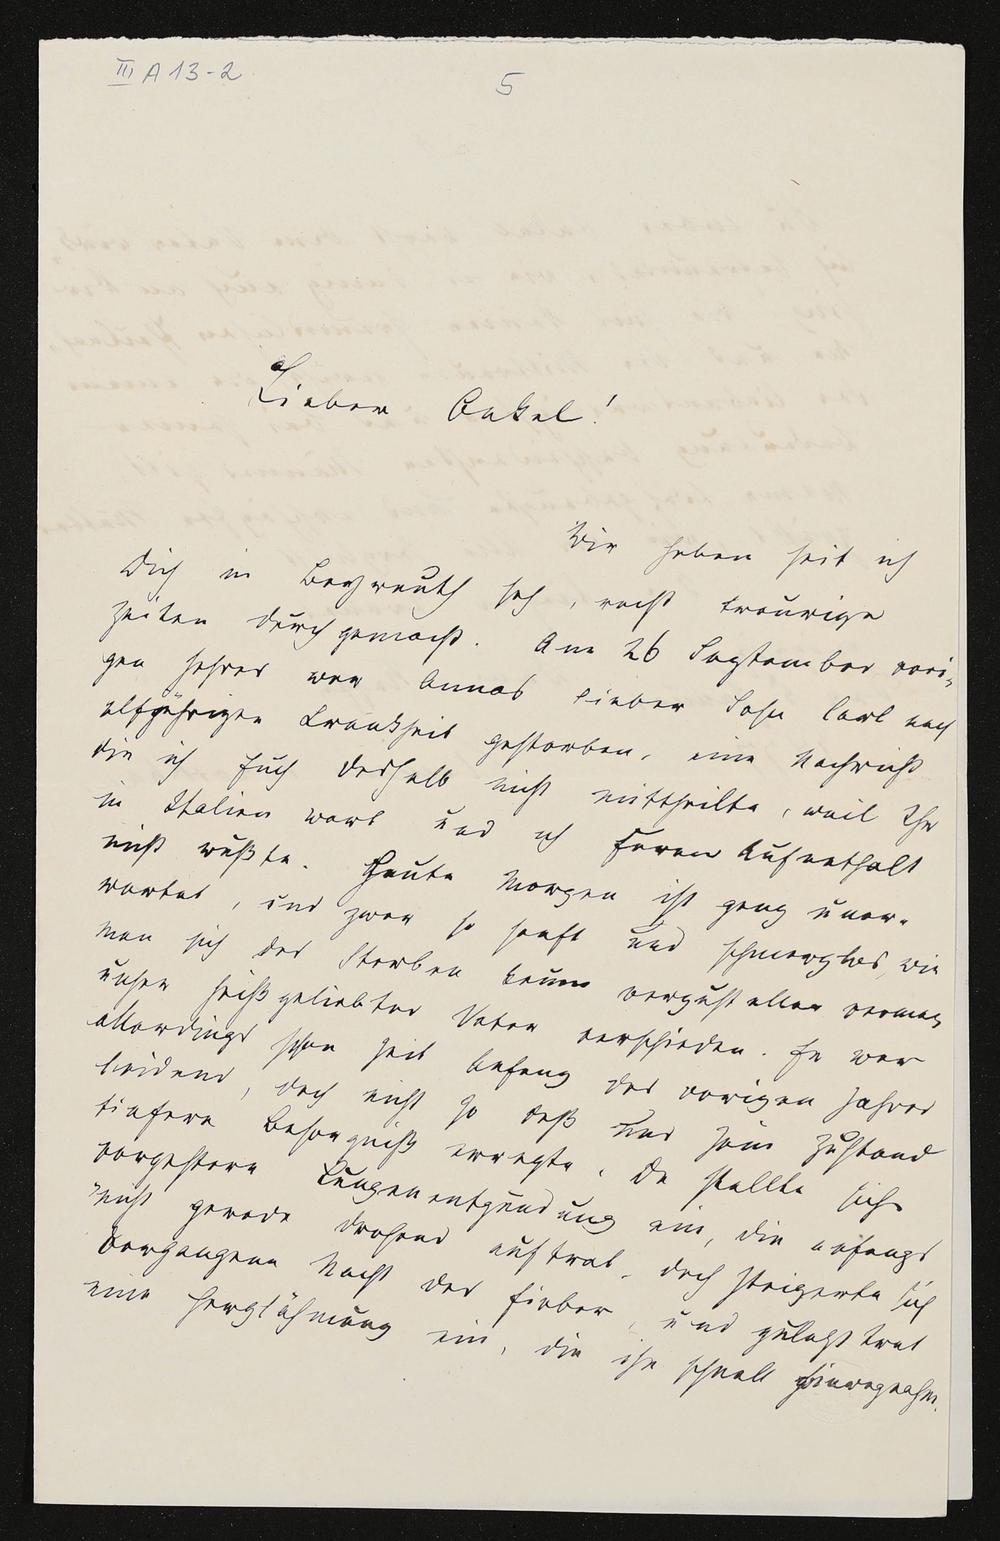 III A 13-2
5
Lieber Onkel!
Wir haben seit ich
Dich in Bayreuth sah, recht traurige
Zeiten durchgemacht. Am 26 September vori-
gen Jahres war Annas lieber Sohn Carl nach
elfjähriger Krankheit gestorben, eine Nachricht
die ich Euch deshalb nicht mittheilte, weil Ihr
in Italien wart und ich Euren Aufenthalt
nicht wußte. Heute Morgen ist ganz uner-
wartet, und zwar so sanft und schmerzlos, wie
man sich das Sterben kaum vorzustellen vermag
unser heißgeliebter Vater verschieden. Er war
allerdings schon seit Anfang des vorigen Jahres
leidend, doch nicht so daß uns sein Zustand
tiefere Besorgniß erregte. Da stellte sich
vorgestern Lungenentzündung ein, die anfangs
nicht gerade drohend auftrat. doch steigerte sich
vergangene Nacht das Fieber, und zuletzt trat
eine Herzlähmung ein, die ihn schnell hinwegnahm.